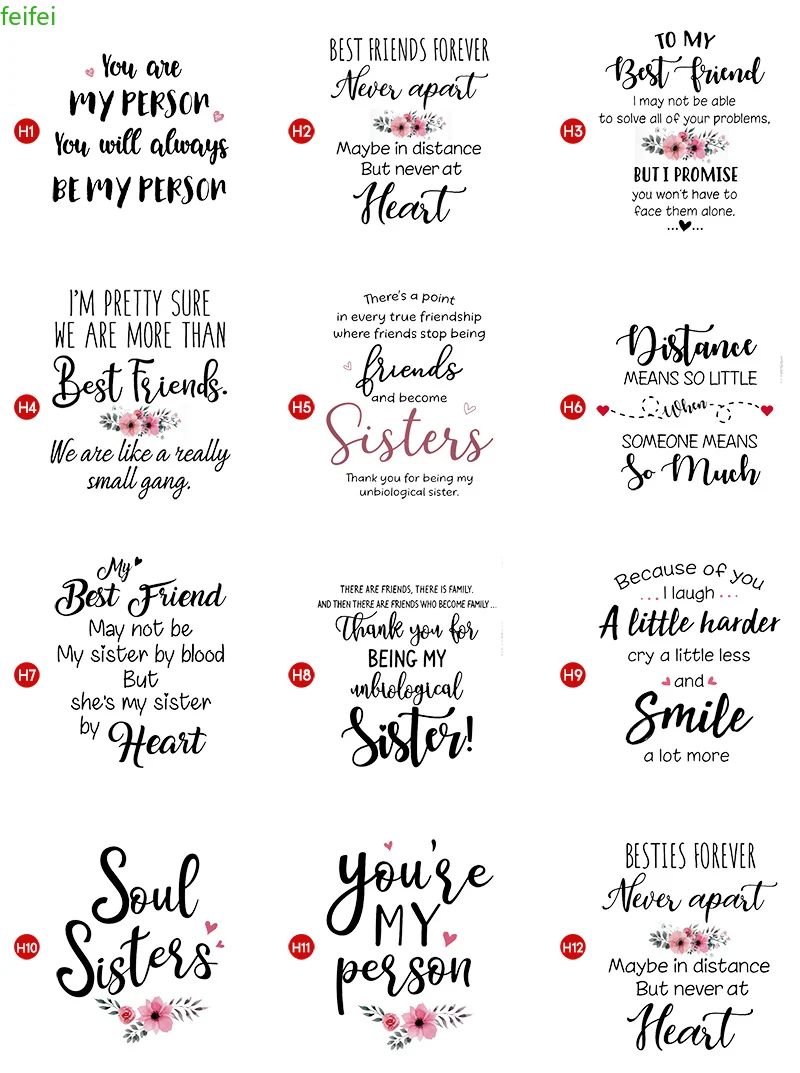 feifei
H1
You are
MY PERSON
You will always
BE MY PERSON
H2
BEST FRIENDS FOREVER
Never apart
Maybe in distance
But never at
Heart
H3
TO MY
Best friend
I may not be able
to solve all of your problems,
BUT I PROMISE
you won't have to
face them alone.
...♥...
H4
I'M PRETTY SURE
WE ARE MORE THAN
Best Friends.
We are like a really
small gang.
H5
There's a point
in every true friendship
where friends stop being
friends
and become
Sisters
Thank you for being my
unbiological sister.
H6
Distance
MEANS SO LITTLE
When
SOMEONE MEANS
So Much
H7
My
Best Friend
May not be
My sister by blood
But
she's my sister
by Heart
H8
THERE ARE FRIENDS, THERE IS FAMILY.
AND THEN THERE ARE FRIENDS WHO BECOME FAMILY...
Thank you for
BEING MY
unbiological
Sister!
H9
Because of you
...I laugh...
A little harder
cry a little less
and
Smile
a lot more
H10
Soul
Sisters
H11
you're
MY
person
H12
BESTIES FOREVER
Never apart
Maybe in distance
But never at
Heart